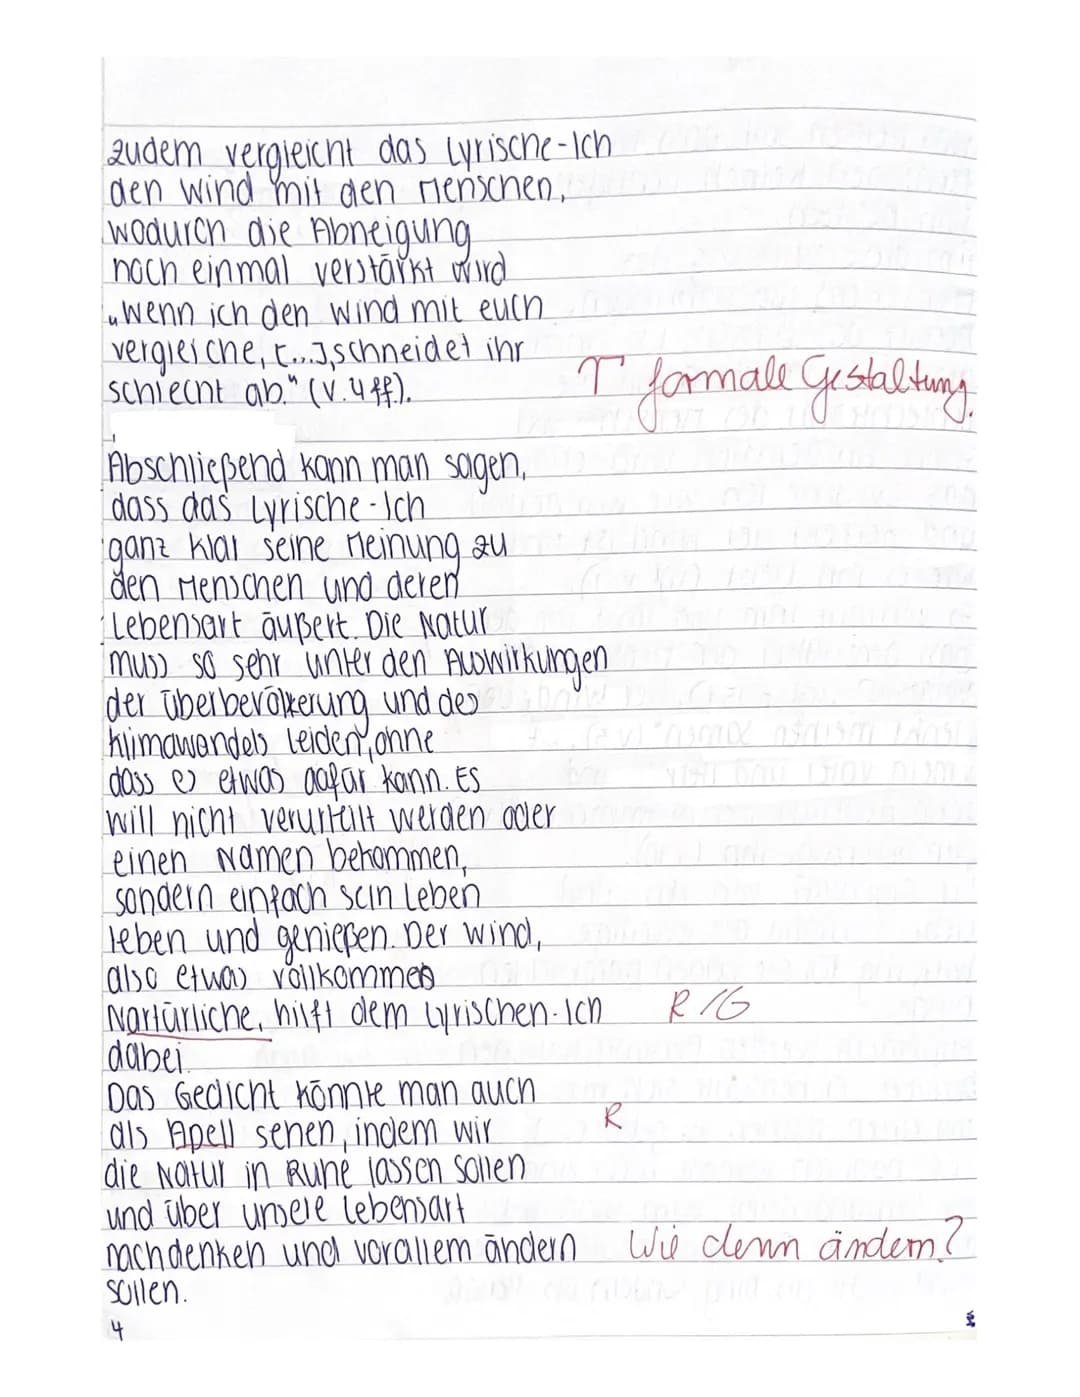 zudem vergleicht das Lyrische-Ich
den Wind mit den Menschen,
wodurch die Abneigung
noch einmal verstärkt wird
„wenn ich den Wind mit euch
vergleiche, [...], schneidet ihr
schlecht ab." (V. 4 ff).
T formale Gestaltung.
Abschließend kann man sagen,
dass das Lyrische-Ich
ganz klar seine Meinung zu
den Menschen und deren
Lebensart äußert. Die Natur
muss so sehr unter den Auswirkungen
der Überbevölkerung und des
Klimawandels leiden, ohne
dass es etwas dafür kann. Es
will nicht verurteilt werden oder
einen Namen bekommen,
sondern einfach sein Leben
leben und genießen. Der Wind,
also etwas vollkommen
Nartürliche, hilft dem Lyrischen-Ich R/G
dabei.
Das Gedicht könnte man auch
als Apell sehen, indem wir R
die Natur in Ruhe lassen sollen
und über unsere Lebensart
nachdenken und vorallem ändern Wie denn ändern?
sollen.
4